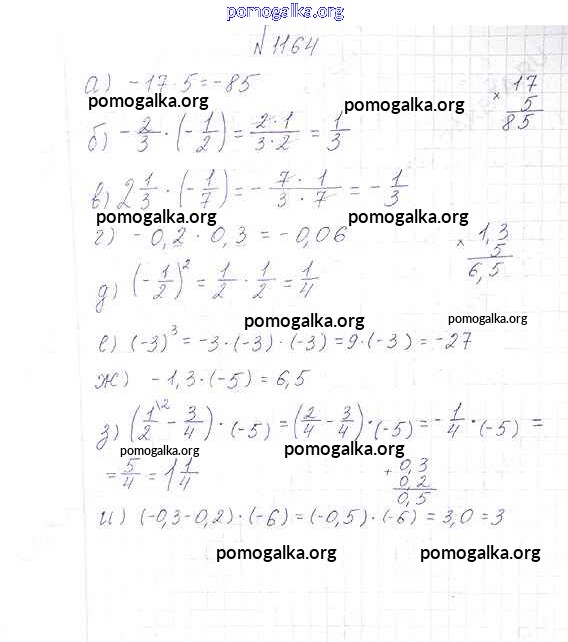 pomogalka.org
№1164
а) -17·5=-85
17
× 5
85
pomogalka.org pomogalka.org
б) -2/3·(-1/2)=2·1/3·2=1/3
в) 2 1/3·(-1/7)=-7·1/3·7=-1/3
pomogalka.org pomogalka.org
г) -0,2·0,3=-0,06
1,3
× 5
6,5
д) (-1/2)²=1/2·1/2=1/4
pomogalka.org pomogalka.org
е) (-3)³=-3·(-3)·(-3)=9·(-3)=-27
ж) -1,3·(-5)=6,5
з) (1/2\2-3/4)·(-5)=(2/4-3/4)·(-5)=-1/4·(-5)=
pomogalka.org pomogalka.org
=5/4=1 1/4
0,3
+ 0,2
0,5
и) (-0,3-0,2)·(-6)=(-0,5)·(-6)=3,0=3
pomogalka.org pomogalka.org